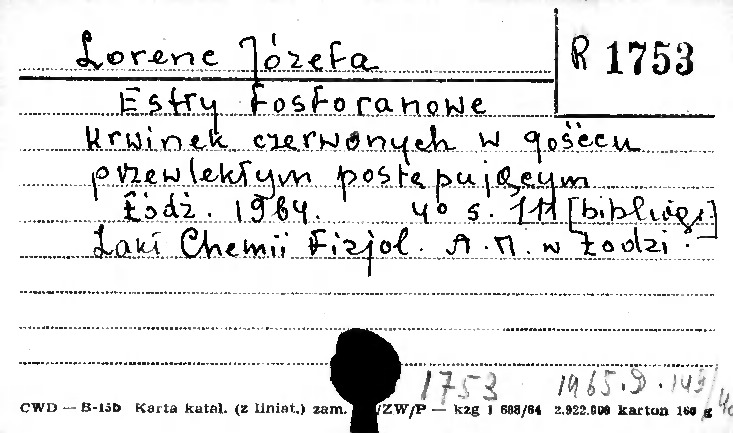 Lorenc Józefa
R 1753
Estry fosforanowe
krwinek czerwonych w gośćcu
przewlekłym postępującym
Łódź. 1964. 4° s. 111 [bibliogr.]
Zakł Chemii Fizjol. A.M. w Łodzi.
1753 1965.D.143/
CWD — B-15b Karta katal. (z liniat.) zam. /ZW/P — kzg 1 688/64 2.922.000 karton 160 g